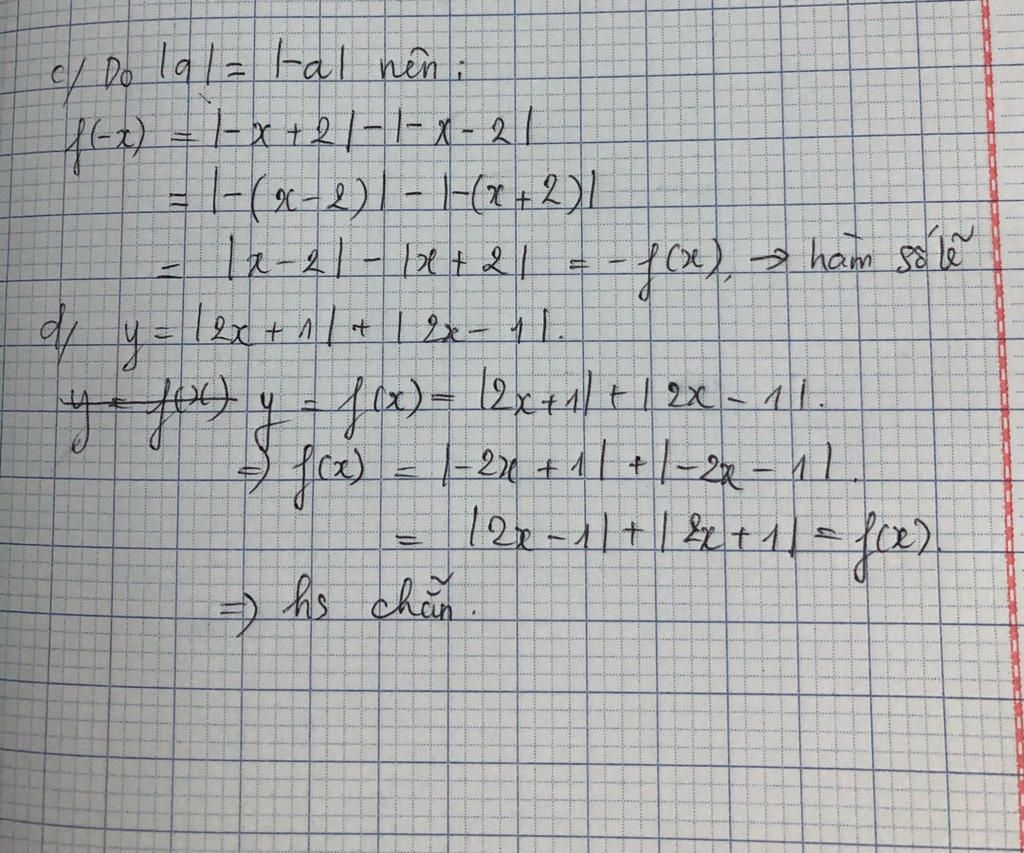 c/ Do |a| = |-a| nên:
f(-x) = |-x + 2| - |-x - 2|
= |-(x - 2)| - |-(x + 2)|
= |x - 2| - |x + 2| = - f(x), → hàm số lẽ
d/ y = |2x + 1| + |2x - 1|.
y = f(x) y = f(x) = |2x + 1| + |2x - 1|.
=> f(x) = |-2x + 1| + |-2x - 1|.
= |2x - 1| + |2x + 1| = f(x).
=> hs chẵn.